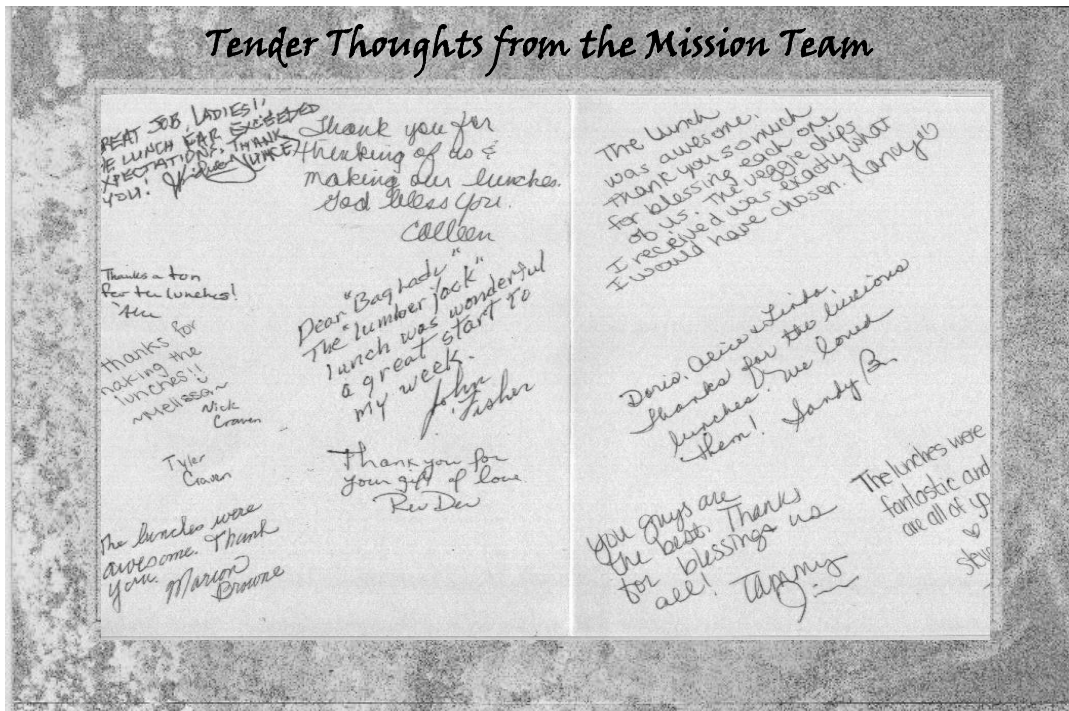 Tender Thoughts from the Mission Team
REAT JOB, LADIES!!
E LUNCH FAR EXCEEDED
XPECTATIONS. THANK
YOU!
Thank you for
thinking of us &
making our lunches.
God bless you.
Colleen
Thanks a ton
for ten lunches!
thanks for
making the
lunches!!
~Melissa~
Nick
Craven
Tyler
Craven
The lunches were
awesome. Thank
you.
Marion
Browne
Dear "Bag Lady"
The "lumber jack"
lunch was wonderful
a great start to
my week.
John
Fisher
Thank you for
your gift of love
Rev Dev
The lunch
was awesome.
Thank you so much
for blessing each one
of us. The veggie chips
I received was exactly what
I would have chosen. Nancy
Doris, Alice & Linda,
Thanks for the lucious
lunches! We loved
them! Sandy B.
You guys are
the best. Thanks
for blessings us
all! Tammy
The lunches were
fantastic and
are all of yo
♡